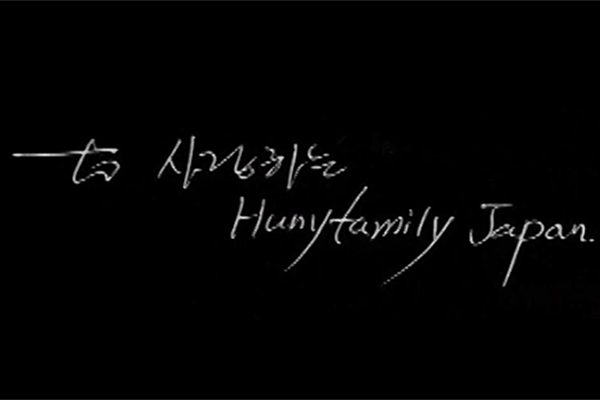 to 사랑하는
Hunyfamily Japan.